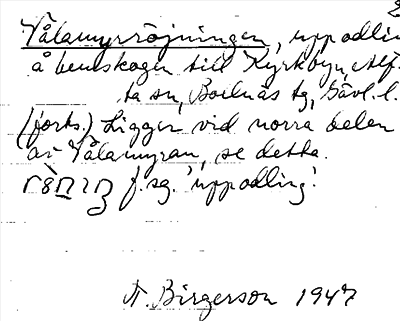 2
Vålamyrröjningen, uppodlin
å hemskogen till Kyrkbyn, Alf-
ta sn, Bollnäs tg, Gävl. l.
(forts.) Ligger vid norra delen
av Vålamyran, se detta.
f. sg. 'uppodling'.
A. Birgerson 1947